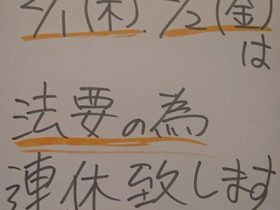 2/1(木).2/2(金)
は
法要の為
連休致します